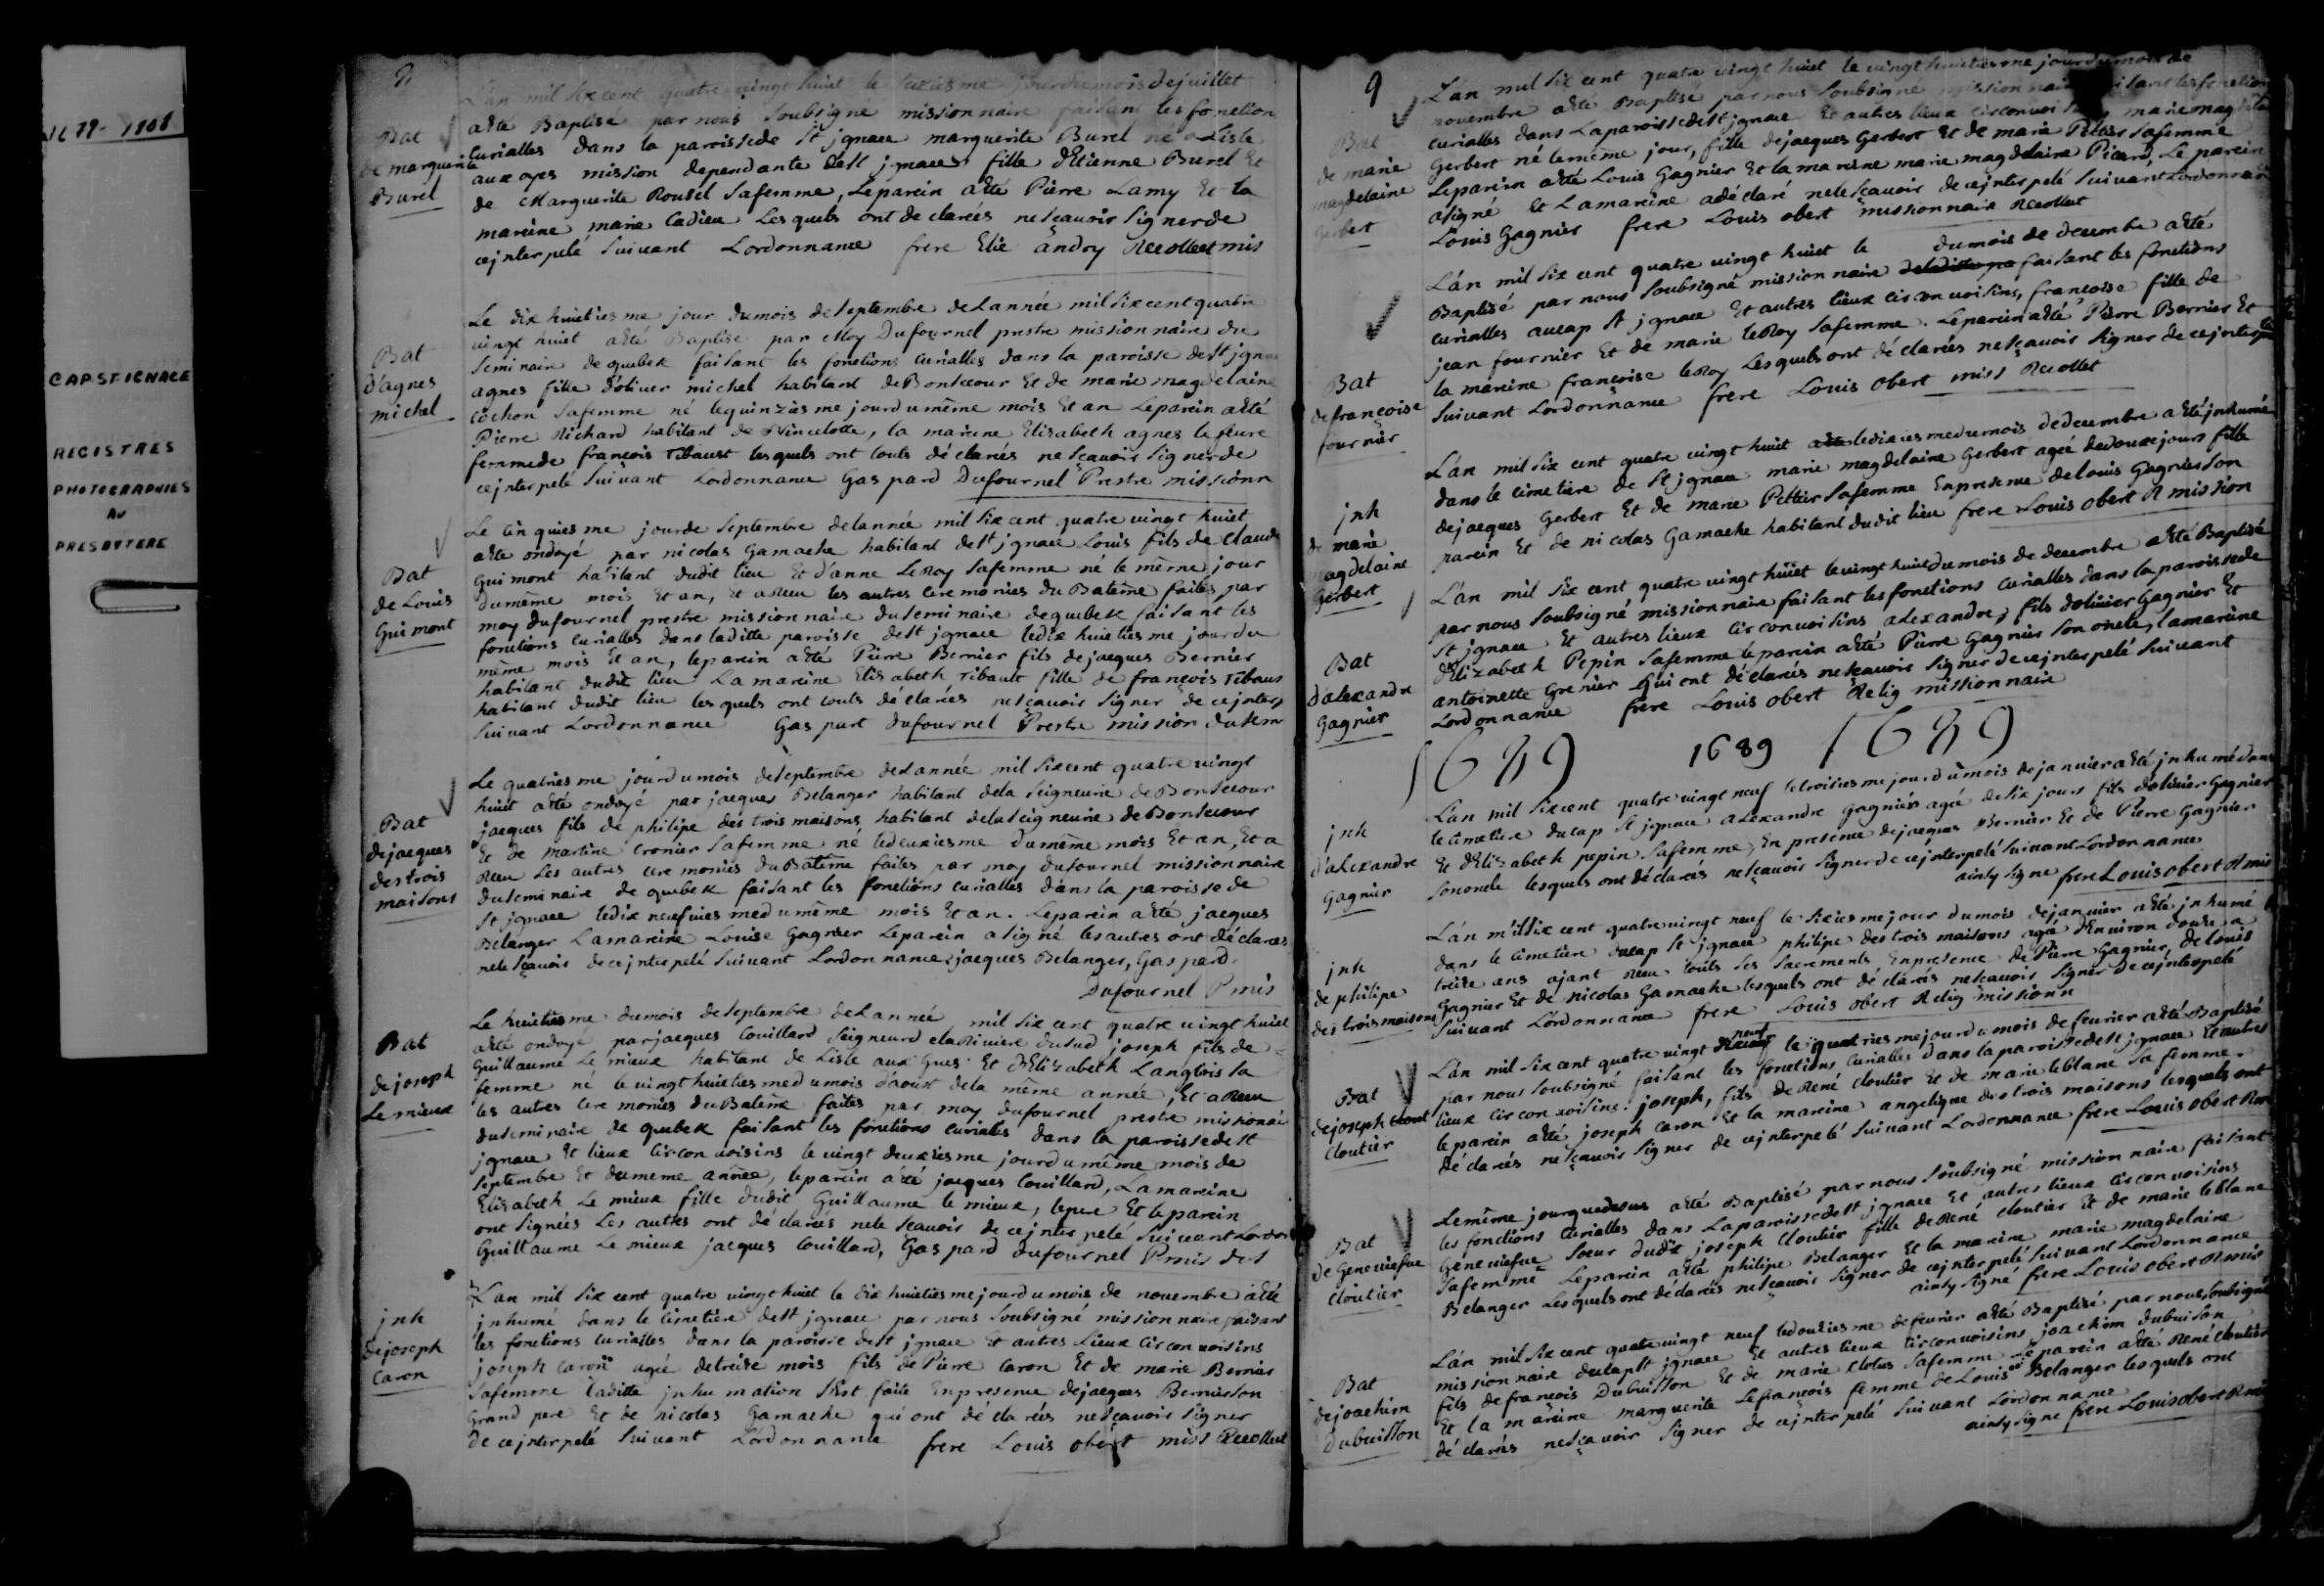 1679-1708
CAP ST-IGNACE
REGISTRES
PHOTOGRAPHIES
AU
PRESBYTERE
Bat
de marguerite
Burel
L'an mil six cent quatre vingt huict le jour du mois de juillet
a esté Baptisé par nous soubsigné missionnaire faisant les fonction
curialles dans la paroisse de St jgnace marguerite Burel né a Lisle
aux oyes mission dependante de St jgnace fille d'Etienne Burel Et
de Marguerite Roussel sa femme, Le parein a esté Pierre Lamy Et la
mareine marie Cadieu Lesquels ont declarés ne sçavoir signer de
ce jnterpelé suivant Lordonnance frere Elie andry Recollect mis
Bat
d'agnes
michel
Le dix huictiesme jour du mois de septembre de Lannée mil six cent quatre
vingt huict a esté Baptisé par Moy Dufournel prestre missionnaire du
seminaire de quebek faisant les fonctions Curialles dans la paroisse de St jgna
agnes fille d'oliuer michel habitant de Bonsecour Et de marie magdelaine
Cochon sa femme né le quinziesme jour du même mois Et an Le parein a esté
Pierre Richard habitant de Vincelotte, la mareine Elisabeth agnes lefeure
femme de françois Tibaust lesquels ont touts déclarés ne sçavoir signer de
ce jnterpelé suivant Lordonnance Gaspard Dufournel Prestre missionn
Bat
de Louis
Guimont
Le cinquiesme jour de septembre de lannée mil six cent quatre vingt huict
a esté ondoyé par nicolas Gamache habitant de St jgnace Louis fils de Claude
Guimont habitant dudit lieu Et d'anne LeRoy sa femme né le même jour
du même mois Et an, Et a Receu les autres ceremonies du Batême faites par
moy dufournel prestre missionnaire du seminaire de quebek faisant les
fonctions Curialles dans laditte paroisse de St jgnace le dix huictiesme jour du
même mois Et an, le parein a esté Pierre Bernier fils de jacques Bernier
habitant dudit lieu La mareine Elisabeth Tibault fille de françois Tibaus
habitant dudit lieu lesquels ont touts déclarés ne sçavoir signer de ce jnterp
suivant Lordonnance Gaspart Dufournel Prestre mission du sem
Bat
de jacques
des trois
maisons
Le quatriesme jour du mois de septembre de Lannée mil six cent quatre vingt
huict a esté ondoyé par jacques Belanger habitant de la seigneurie de Bonsecour
jacques fils de philipe des trois maisons habitant de la seigneurie de Bonsecour
Et de martine Cronier sa femme né le deuxiesme du même mois Et an, Et a
Receu Les autres ceremonies du Batême faites par moy dufournel missionnaire
du seminaire de quebek faisant les fonctions curialles dans la paroisse de
St jgnace le dix neufuiesme du même mois Et an. Le parein a esté jacques
Belanger La mareine Louise Gagnier Le parein a signé les autres ont déclarés
ne le sçavoir de ce jnterpelé suivant Lordonnance jacques Belanger, Gaspard
Dufournel P mis
Bat
de joseph
Le mieux
Le huictiesme du mois de septembre de Lannée mil six cent quatre vingt huict
a esté ondoyé par jacques Couillard seigneur de la Riuiere du sud joseph fils de
Guillaume Le mieux habitant de Lisle aux Grues Et d'Elizabeth Langlois sa
femme né le vingt huictiesme du mois d'aoust de la même année, Et a Receu
les autres ceremonies du Batême faites par moy dufournel prestre missionai
du seminaire de quebek faisant les fonctions curialles dans la paroisse de St
jgnace Et lieux circonuoisins le vingt deuxiesme jour du même mois de
septembre Et du meme année, le parein a esté jacques Couillard, La mareine
Elisabeth Le mieux fille dudit Guillaume le mieux, le pere Et le parein
ont signés Les autres ont déclarés ne le sçauoir de ce jnterpelé suiuant Lordon
Guillaume Le mieux jacques Couillard, Gaspard dufournel P mis
jnh
de joseph
Caron
L'an mil six cent quatre vingt huict le dix huictiesme jour du mois de novembre a esté
jnhumé dans le cimetiere de St jgnace par nous soubsigné missionnaire faisant
les fonctions curialles dans la paroisse de St jgnace Et autres lieux circonuoisins
joseph Caron agée de treize mois fils de Pierre Caron Et de marie Bernier
sa femme laditte jnhumation s'est faite En presence de jacques Bernier son
Grand pere Et de nicolas Gamache qui ont déclarés ne sçavoir signer
de ce jnterpelé suivant Lordonnance frere Louis obert miss Recollect
9
Bat
de marie
magdelaine
Gerbert
L'an mil six cent quatre vingt huict le vingt huictiesme jour du mois de
novembre a esté Baptisé par nous soubsigné missionnaire faisant les fonction
curialles dans La paroisse de St jgnace Et autres lieux circonuoisins marie magdela
Gerbert né le même jour, fille de jacques Gerbert Et de marie Pettier sa femme
Le parein a esté Louis Gagnier Et la mareine marie magdelaine Picard, Le parein
a signé Et La mareine a déclaré ne le sçavoir de ce jnterpelé suivant Lordonnan
Louis Gagnier frere Louis obert missionnaire Recollect
Bat
de françoise
fournier
L'an mil six cent quatre vingt huict le du mois de decembre a esté
Baptisé par nous soubsigné missionnaire faisant les fonctions
curialles au cap St jgnace Et autres lieux circonuoisins, françoise fille de
jean fournier Et de marie leRoy sa femme. Le parein a esté Pierre Bernier Et
la mareine françoise leRoy Lesquels ont déclarés ne sçavoir signer de ce jnterpe
suivant Lordonnance frere Louis obert miss Recollet
jnh
de marie
magdelaine
Gerbert
L'an mil six cent quatre vingt huit le dixiesme du mois de decembre a esté jnhumé
dans le cimetiere de St jgnace marie magdelaine Gerbert agée de douze jours fille
de jacques Gerbert Et de marie Pettier sa femme En presence de Louis Gagnier son
parein Et de nicolas Gamache habitant dudit lieu frere Louis obert R mission
Bat
d'alexandre
Gagnier
L'an mil six cent, quatre vingt huict le vingt huit du mois de decembre a esté Baptisé
par nous soubsigné missionnaire faisant les fonctions Curialles dans la paroisse de
St jgnace Et autres lieux circonuoisins alexandre, fils d'oliuier Gagnier Et
d'Elizabeth Pepin sa femme le parein a esté Pierre Gagnier son oncle, la mareine
antoinette Grenier Qui ont déclarés ne sçavoir signer de ce jnterpelé suivant
Lordonnance frere Louis obert Relig missionnaire
1689 1689 1689
jnh
d'alexandre
Gagnier
L'an mil six cent quatre vingt neuf le troisiesme jour du mois de januier a esté jnhumé dans
le cimetiere du cap St jgnace alexandre Gagnier agée de six jours fils d'oliuier Gagnier
Et d'Elizabeth pepin sa femme, En presence de jacques Bernier Et de Pierre Gagnier
son oncle lesquels ont déclarés ne sçavoir signer de ce jnterpelé suivant Lordonnance
ainsy signe frere Louis obert R mis
jnh
de philipe
des trois maisons
L'an mil six cent quatre vingt neuf le sixiesme jour du mois de januier a esté jnhumé
dans le cimetiere du cap St jgnace philipe des trois maisons agé d'Enuiron douze a
treize ans ajant Receu touts ses sacrements En presence de Pierre Gagnier, de louis
Gagnier Et de nicolas Gamache lesquels ont déclarés ne sçavoir signer de ce jnterpelé
suivant Lordonnance frere Louis obert Relig missionn
Bat
de joseph
Cloutier
L'an mil six cent quatre vingt neuf le quatriesme jour du mois de feurier a esté Baptisé
par nous soubsigné faisant les fonctions curialles dans la paroisse de St jgnace Et autres
lieux circonuoisins. joseph, fils de René cloutier Et de marie leblanc sa femme.
le parein a esté joseph Caron Et la mareine angelique des trois maisons lesquels ont
déclarés ne sçavoir signer de ce jnterpelé suivant Lordonnance frere Louis obert Rmi
Bat
de Geneuiefue
Cloutier
Le même jour que dessus a esté Baptisé par nous soubsigné missionnaire faisant
les fonctions Curialles dans La paroisse de St jgnace Et autres lieux circonuoisins
Geneuiefue sœur dudit joseph Cloutier fille de René cloutier Et de marie leblanc
sa femme Le parein a esté philipe Belanger Et la mareine marie magdelaine
Belanger Lesquels ont déclarés ne sçavoir signer de ce jnterpelé suivant Lordonnance
ainsy signé frere Louis obert R mis
Bat
de joachim
Dubuisson
L'an mil six cent quatre vingt neuf le douziesme de feurier a esté Baptisé par nous soubsigné
missionnaire du cap St jgnace Et autres lieux circonuoisins joachim dubuison
fils de françois Dubuisson Et de marie sa femme Le parein a esté René cloutier
Et la mareine marguerite Lefrançois femme de Louis Belanger lesquels ont
déclarés ne sçavoir signer de ce jnterpelé suivant Lordonnance
ainsy signe frere Louis obert R mis